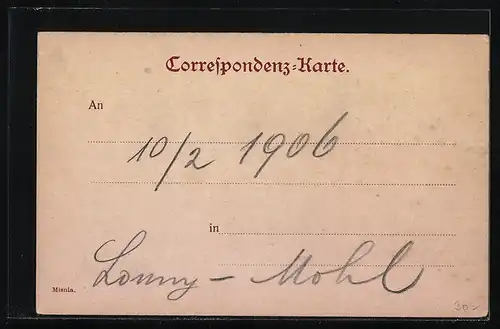 Correspondenz-Karte.
An
10/2 1906
in
Lonny - Mohl
Misnia.
30.-